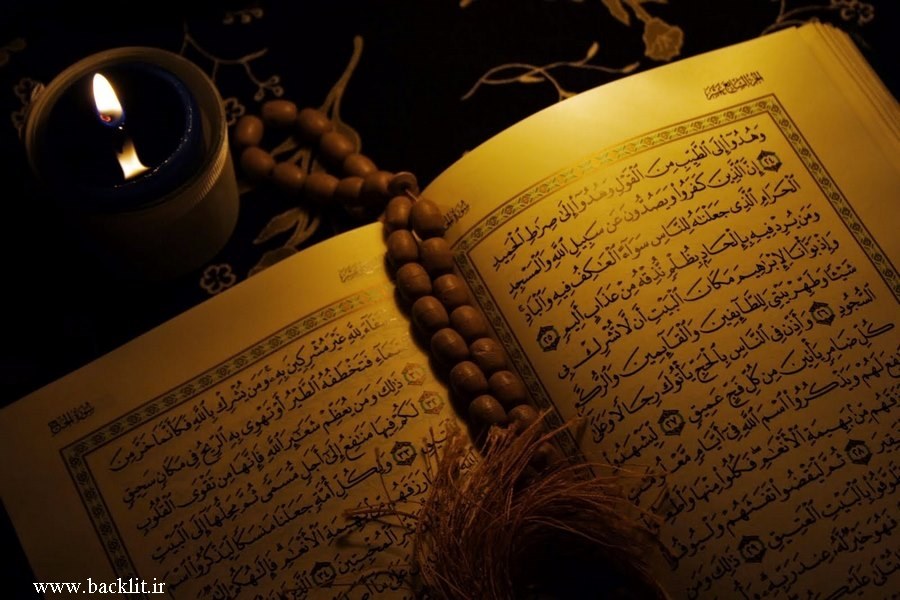 الجزء السابع عشر
وَهُدُوٓا۟ إِلَى ٱلطَّيِّبِ مِنَ ٱلْقَوْلِ وَهُدُوٓا۟ إِلَىٰ صِرَٰطِ ٱلْحَمِيدِ
٢٤ إِنَّ ٱلَّذِينَ كَفَرُوا۟ وَيَصُدُّونَ عَن سَبِيلِ ٱللَّهِ وَٱلْمَسْجِدِ
ٱلْحَرَامِ ٱلَّذِى جَعَلْنَٰهُ لِلنَّاسِ سَوَآءً ٱلْعَٰكِفُ فِيهِ وَٱلْبَادِ
وَمَن يُرِدْ فِيهِ بِإِلْحَادٍۭ بِظُلْمٍ نُّذِقْهُ مِنْ عَذَابٍ أَلِيمٍ ٢٥
وَإِذْ بَوَّأْنَا لِإِبْرَٰهِيمَ مَكَانَ ٱلْبَيْتِ أَن لَّا تُشْرِكْ بِى
شَيْـًٔا وَطَهِّرْ بَيْتِىَ لِلطَّآئِفِينَ وَٱلْقَآئِمِينَ وَٱلرُّكَّعِ
ٱلسُّجُودِ ٢٦ وَأَذِّن فِى ٱلنَّاسِ بِٱلْحَجِّ يَأْتُوكَ رِجَالًا وَعَلَىٰ
كُلِّ ضَامِرٍ يَأْتِينَ مِن كُلِّ فَجٍّ عَمِيقٍ ٢٧ لِّيَشْهَدُوا۟
لَهُمْ وَيَذْكُرُوا۟ ٱسْمَ ٱللَّهِ فِىٓ أَيَّامٍ
مِّنۢ بَهِيمَةِ ٱلْأَنْعَٰمِ فَكُلُوا۟ مِنْهَا
٢٨ ثُمَّ لْيَقْضُوا۟ تَفَثَهُمْ وَلْيُوفُوا۟
بِٱلْبَيْتِ ٱلْعَتِيقِ ٢٩ ذَٰلِكَ وَمَن
فَهُوَ خَيْرٌ لَّهُۥ عِندَ رَبِّهِۦ
سورة الحج
لِلَّهِ غَيْرَ مُشْرِكِينَ بِهِۦ وَمَن يُشْرِكْ بِٱللَّهِ فَكَأَنَّمَا خَرَّ مِنَ
فَتَخْطَفُهُ ٱلطَّيْرُ أَوْ تَهْوِى بِهِ ٱلرِّيحُ فِى مَكَانٍ سَحِيقٍ
ذَٰلِكَ وَمَن يُعَظِّمْ شَعَٰٓئِرَ ٱللَّهِ فَإِنَّهَا مِن تَقْوَى ٱلْقُلُوبِ
لَكُمْ فِيهَا مَنَٰفِعُ إِلَىٰٓ أَجَلٍ مُّسَمًّى ثُمَّ مَحِلُّهَآ إِلَى ٱلْبَيْتِ
وَلِكُلِّ أُمَّةٍ جَعَلْنَا مَنسَكًا لِّيَذْكُرُوا۟ ٱسْمَ
www.backlit.ir